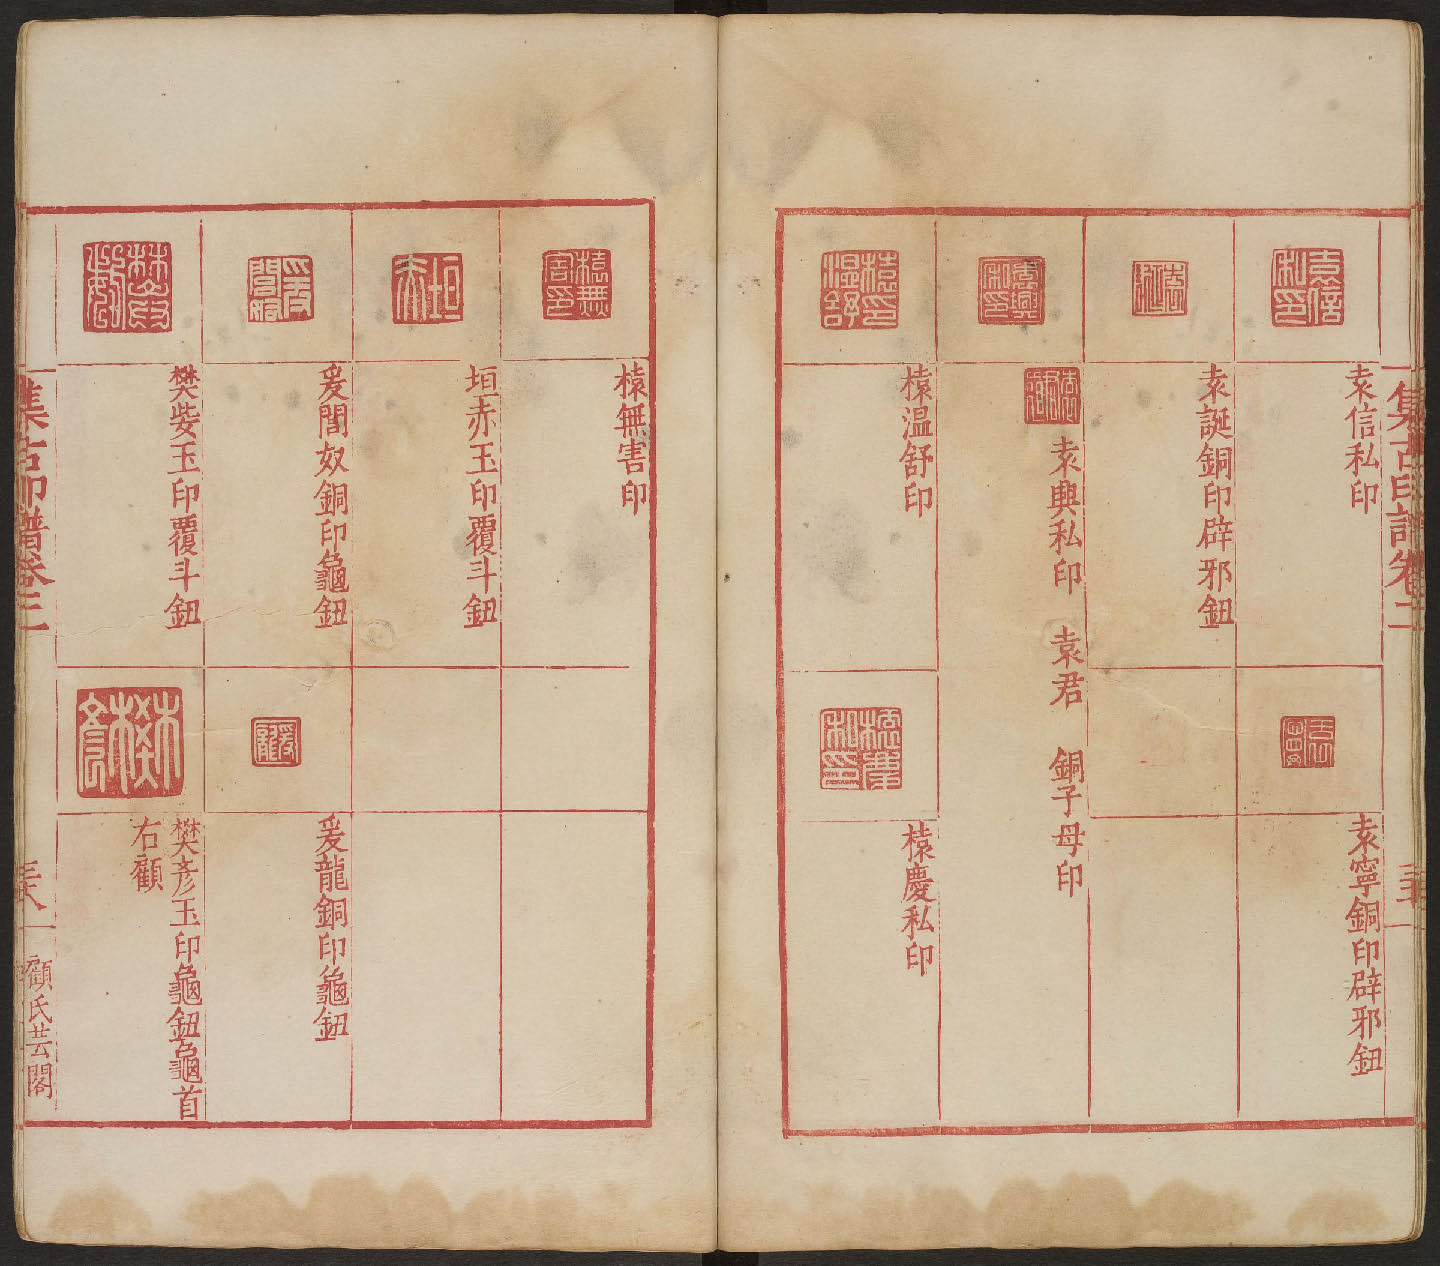 集古印譜卷二
袁信私印
袁寧銅印辟邪鈕
袁誕銅印辟邪鈕
袁興私印 袁君 銅子母印
榬溫舒印
榬慶私印
榬無害印
垣赤玉印覆斗鈕
爰閭奴銅印龜鈕
爰龍銅印龜鈕
樊娤玉印覆斗鈕
樊彥玉印龜鈕龜首
右顧
集古印譜卷三
顧氏芸閣